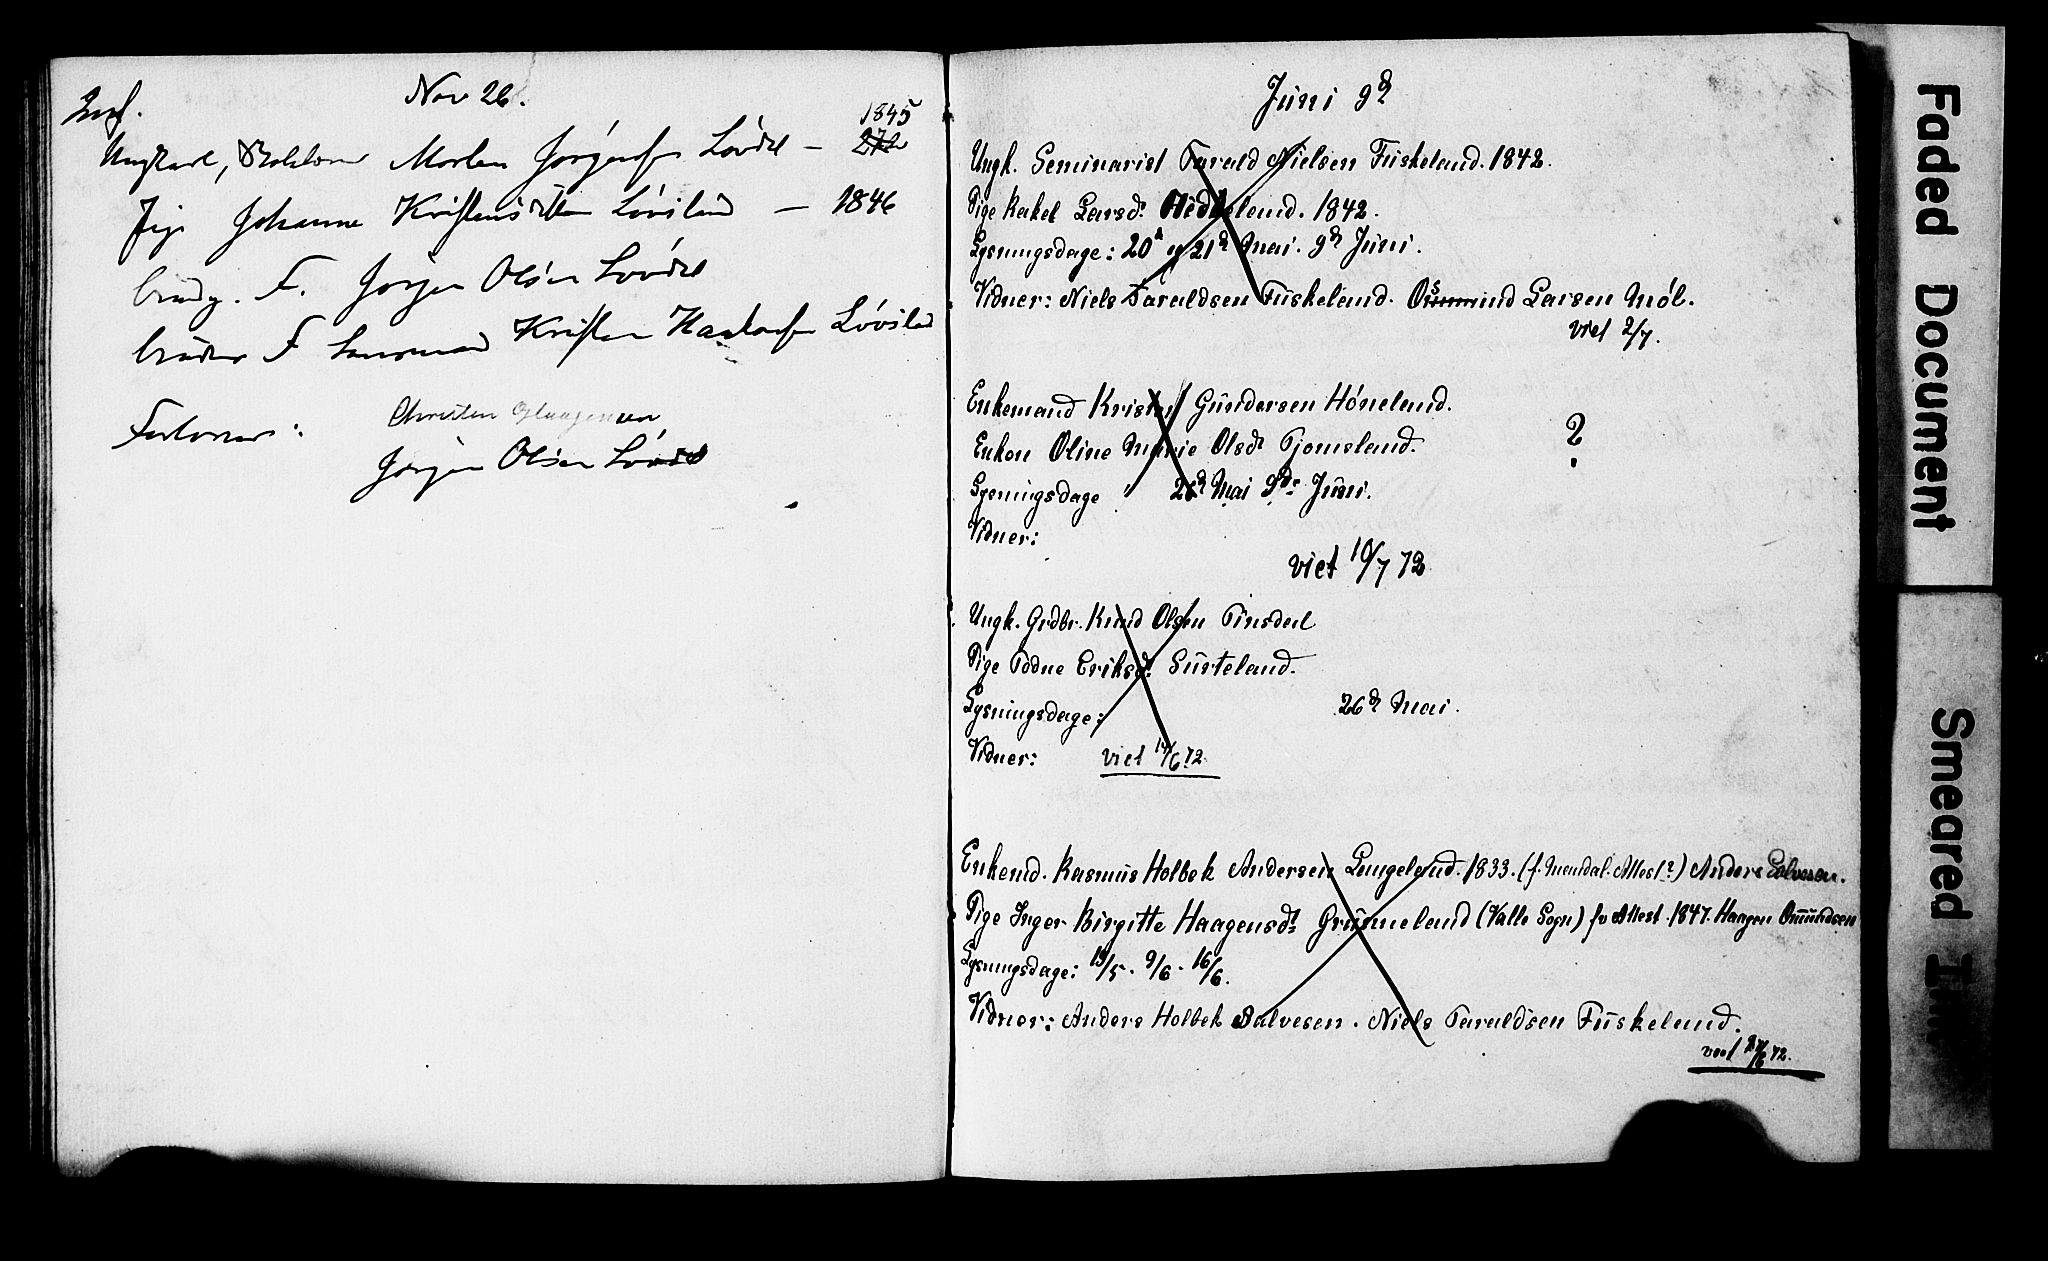 Nov 26.
1845
Ungkarl, Morten Jørgensen Løvdal – 272
Pige Johanne Kristensdatter Løvsland – 1846
brudg. F. Jørgen Olsen Løvdal
brudens F Kristen Løvsland
Forlovere:
Christen Haagensen
Jørgen Olsen Løvdal
Juni 9d
Ungk. Seminarist Tarald Nielsen Fuskeland. 1842.
Pige Rakel Larsd. Heddeland. 1842.
Lysningsdage: 20d og 21d Mai. 9d Juni.
Vidner: Niels Taraldsen Fuskeland. Osmund Larsen Møl.
viet 2/7.
Enkemand Kristen Gundersen Høneland.
?
Enken Oline Marie Olsdt Tjomsland.
Lysningsdage: 26d Mai 9de Juni.
Vidner:
viet 10/7 72
Ungk. Grdbr. Knud Olsen Tinsdal
Pige Todne Eriksdt. Surteland.
Lysningsdage: 26d Mai.
Vidner: viet 14/6 72
Enkemd. Rasmus Holbek Andersen Lengeland. 1833. (f. Mandal. Attest?) Anders Salvesen.
Pige Inger Birgitte Haagensdt. Grummeland (Valle Sogn) fv Attest. 1847. Haagen Omundsen
Lysningsdage: 19/5. 9/6. 16/6.
Vidner: Anders Holbek Salvesen. Niels Taraldsen Fuskeland.
viet 27/6 72.
Faded Document
Smeared